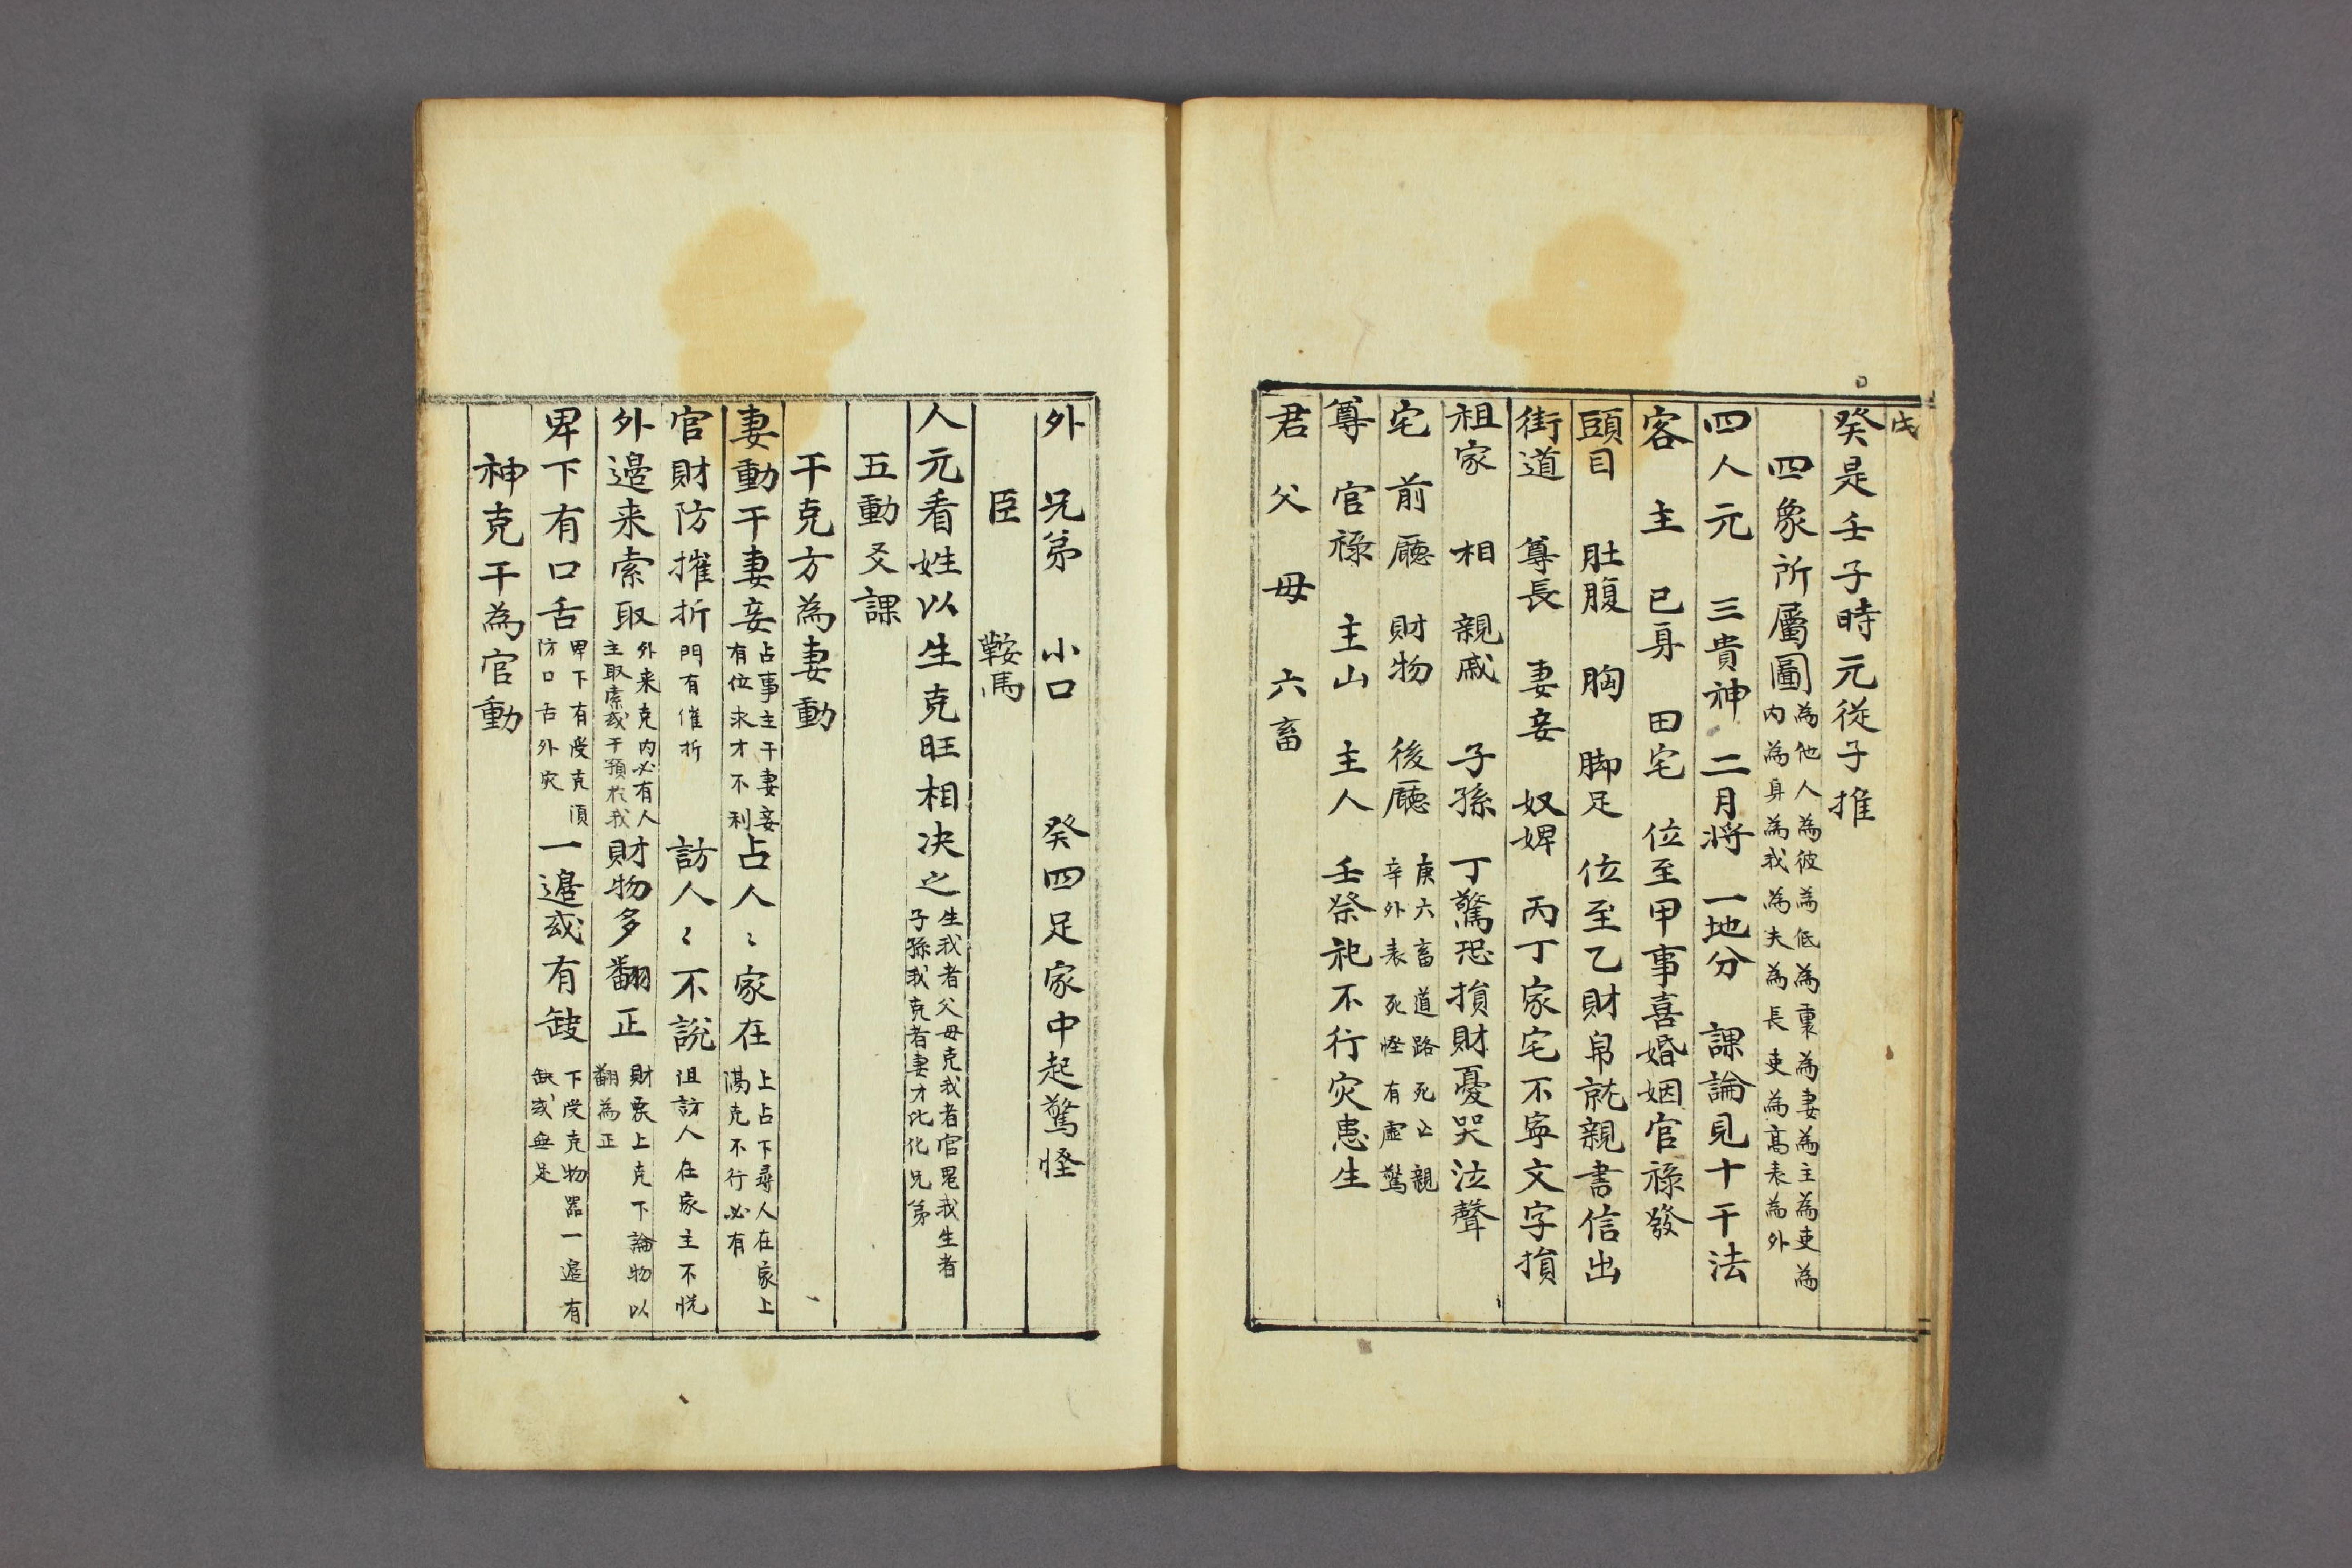 戊
癸是壬子時元從子推
四象所屬圖
為他人為彼為低為裏為妻為主為吏為
内為身為我為夫為長吏為高表為外
四人元 三貴神 二月將 一地分 課論見十干法
客 主 已身 田宅 位至甲事喜婚姻官祿發
頭目 肚腹 胸 脚足 位至乙財帛就親書信出
街道 尊長 妻妾 奴婢 丙丁家宅不寧文字損
祖家 相 親戚 子孫 丁驚恐損財憂哭泣聲
宅 前廳 財物 後廳
庚六畜道路死亡親
辛外表死怪有虛驚
尊 官祿 主山 主人 壬祭祀不行灾患生
君 父母 六畜
外 兄弟 小口 癸四足家中起驚怪
臣 鞍馬
人元看姓以生克旺相决之
生我者父母克我者官鬼我生者
子孫我克者妻才比化兄弟
五動爻課
干克方為妻動
妻動干妻妾
占事主干妻妾
有位求才不利
占人〻家在
上占下尋人在家上
克不行必有
官財防摧折
門有催折
訪人〻不說
訪人在家主不悅
外邉来索取
外来克内必有人
主取索或干預扵我
財物多翻正
財衆上克下論物以
翻為正
卑下有口舌
卑下有受克湏
防口舌外灾
一邉或有缺
下受克物器一邉有
缺或無足
神克干為官動